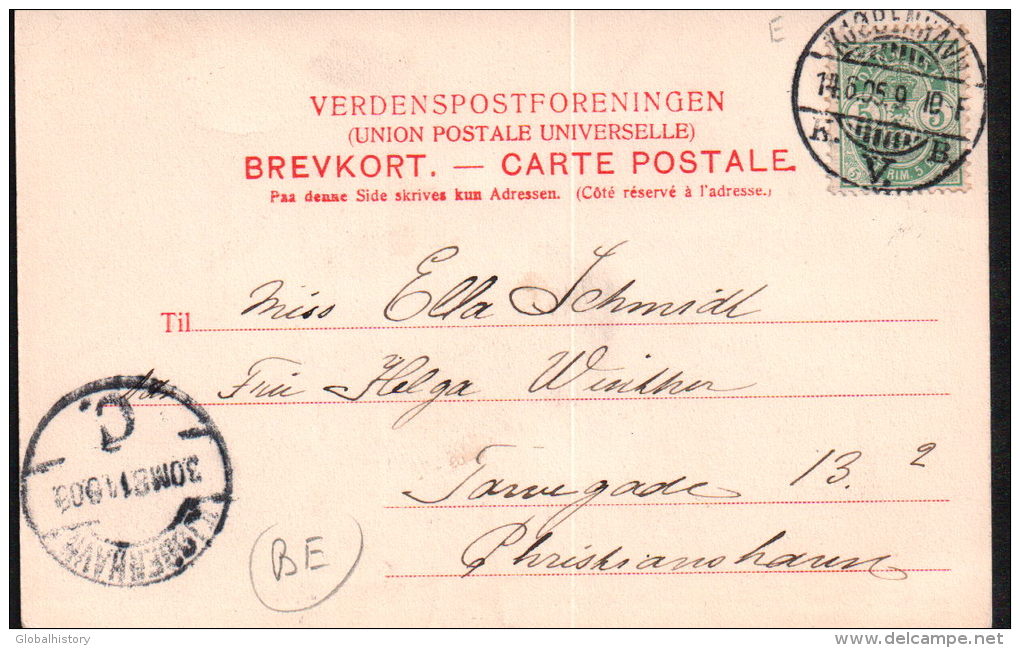 E
KJØBENHAVN
14.6.05.9-10 F
K. B.
V.
5 5
5 5
VERDENSPOSTFORENINGEN
(UNION POSTALE UNIVERSELLE)
BREVKORT. — CARTE POSTALE.
Paa denne Side skrives kun Adressen. (Côté réservé à l'adresse.)
Til Miss Ella Schmidt
Fru Helga Winther
Torvegade 13.²
Christianshavn
C.
KJØBENHAVN
BE
Globalhistory
delcampe.net